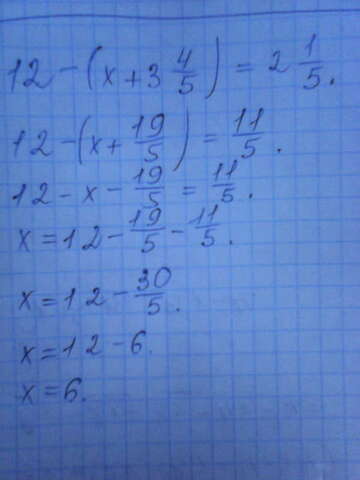 12 - (x + 3 4/5) = 2 1/5.
12 - (x + 19/5) = 11/5.
12 - x - 19/5 = 11/5.
x = 12 - 19/5 - 11/5.
x = 12 - 30/5.
x = 12 - 6.
x = 6.